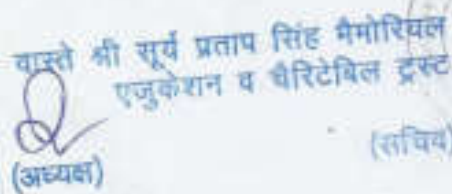 वास्ते श्री सूर्य प्रताप सिंह मैमोरियल
एजुकेशन व चैरिटेबिल ट्रस्ट
(सचिव)
(अध्यक्ष)